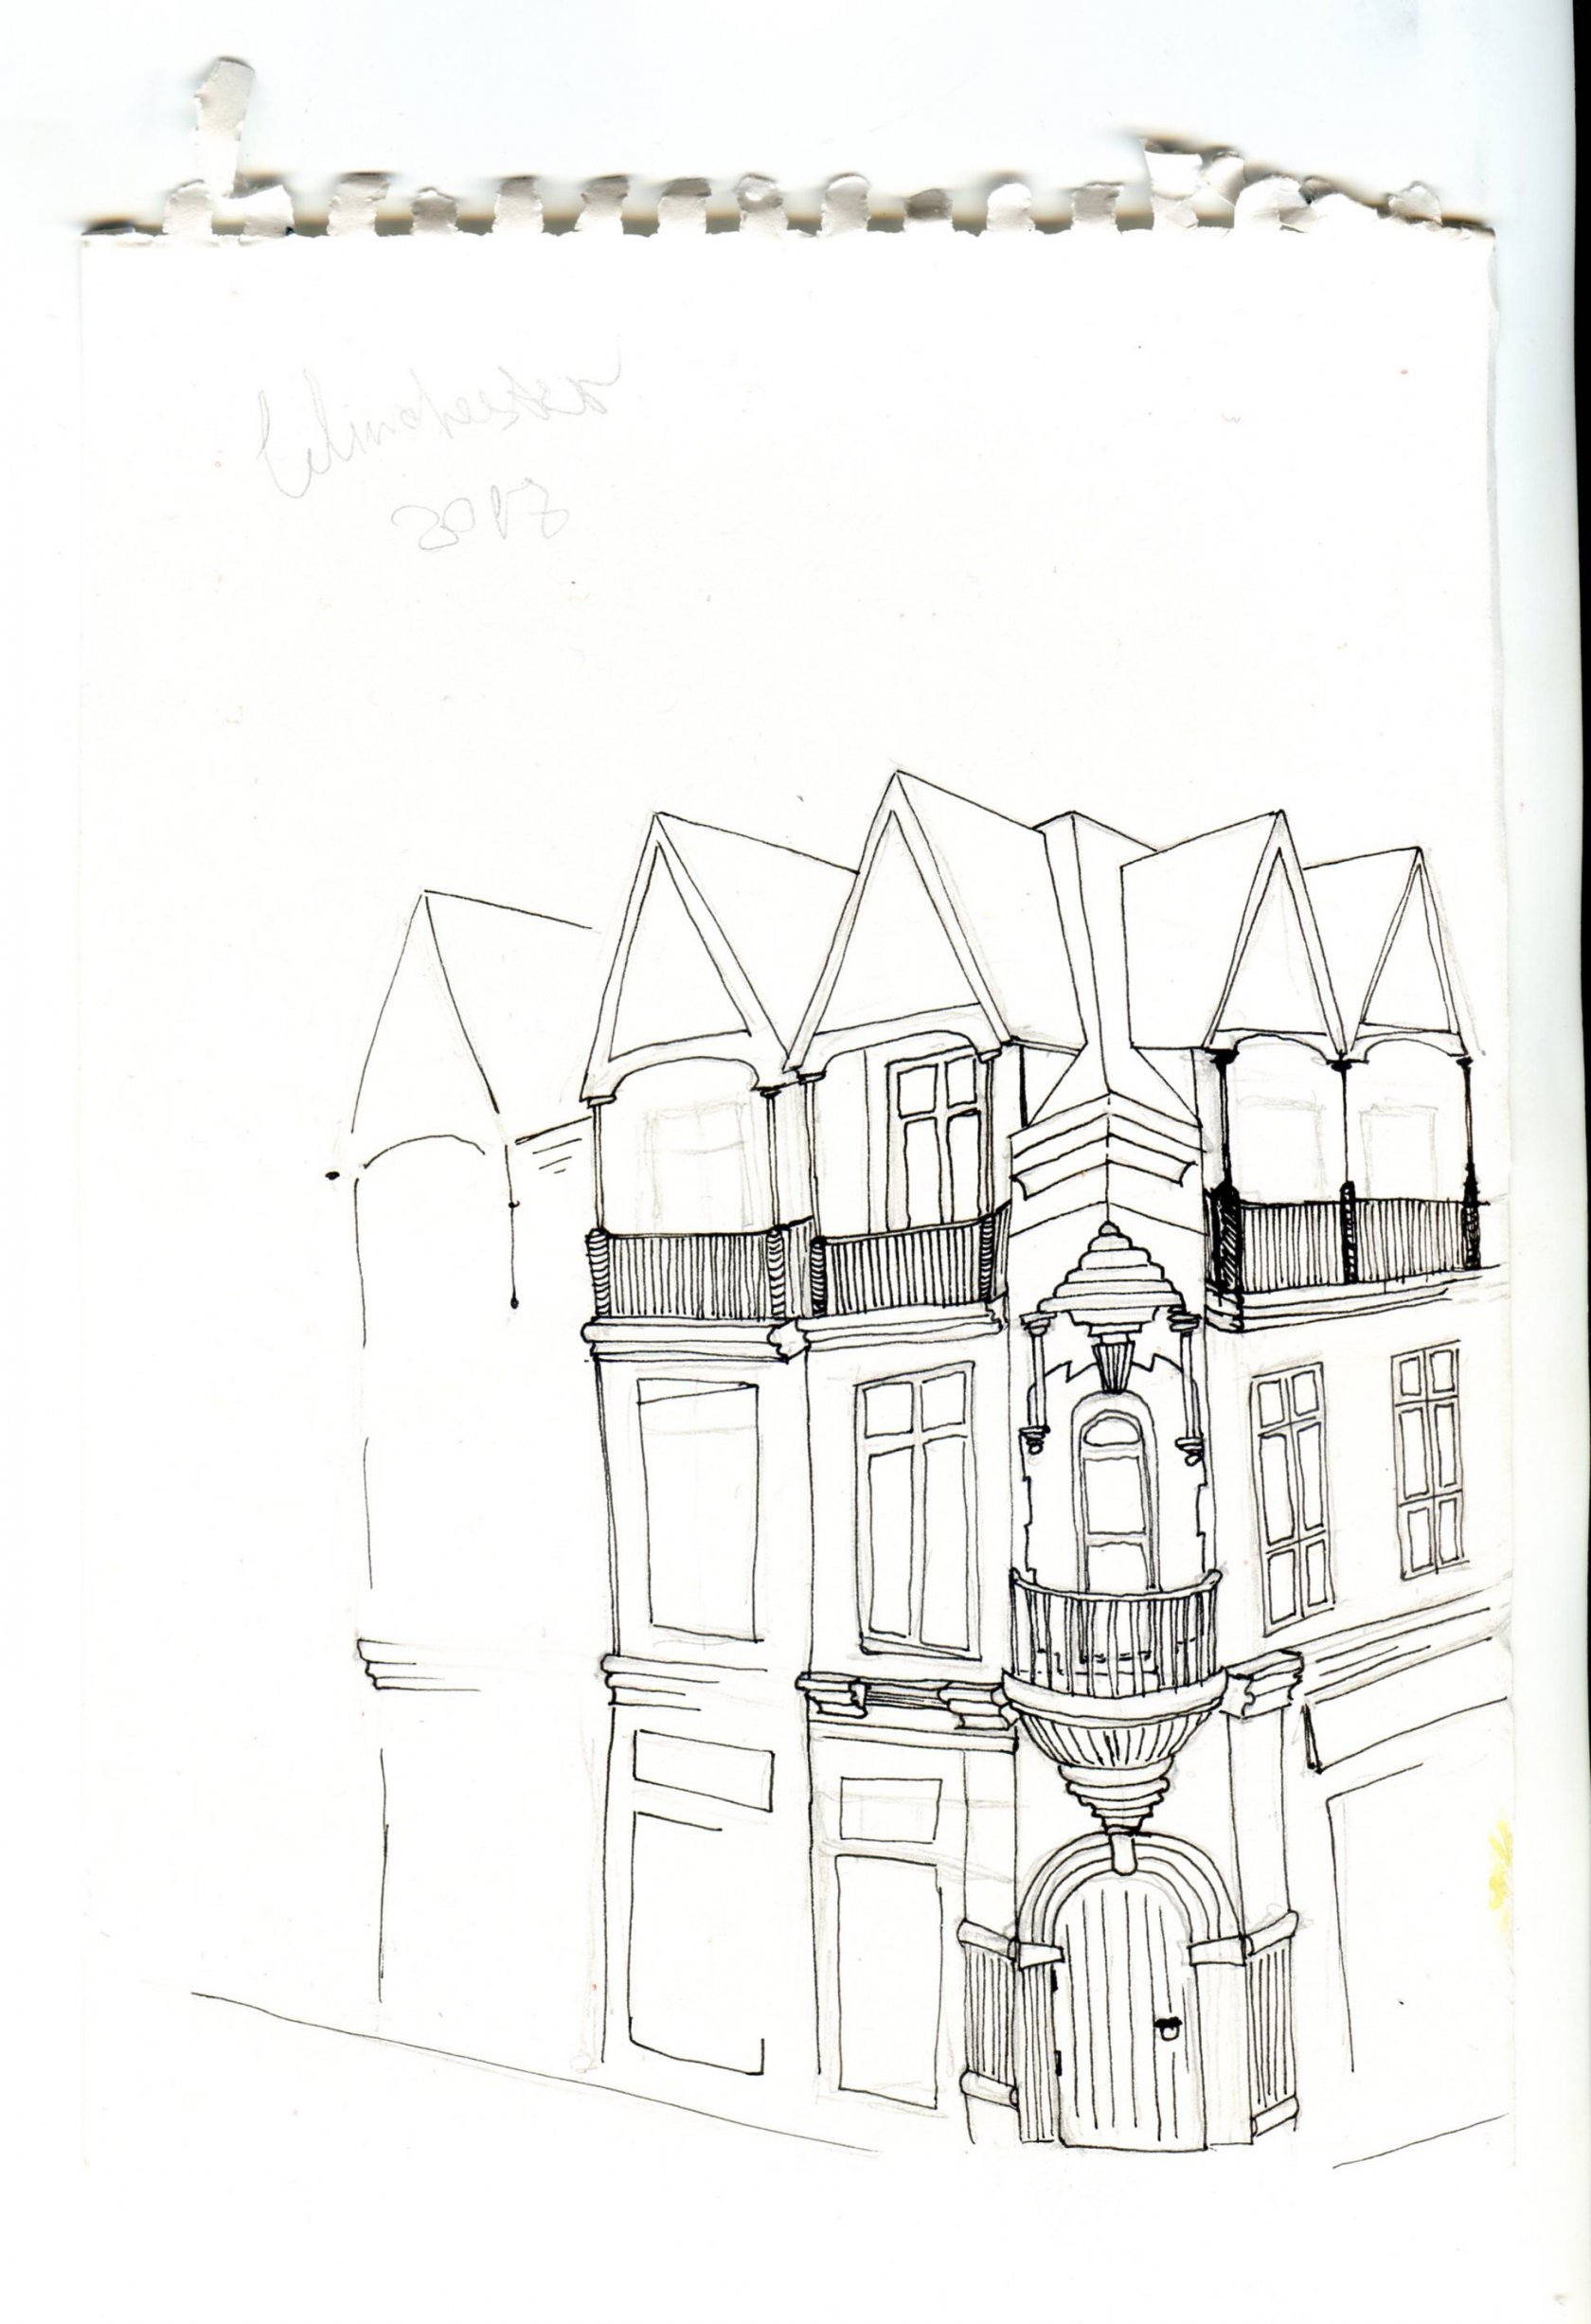 Winchester
2017